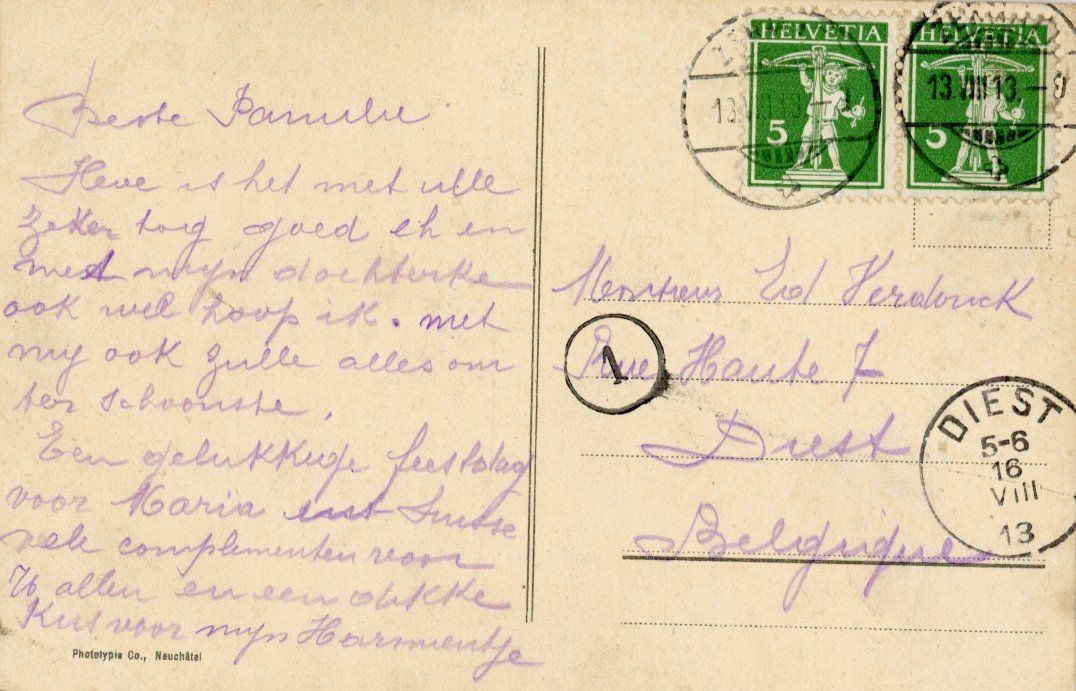 Beste Familie
Heve is het met ulle
zeker tog goed eh en
met mijn dochterke
ook wel hoop ik. met
my ook zulle alles om
ter schoonste.
Een gelukkige feestdag
voor Maria
vele complementen voor
U allen en een dikke
Kus voor mijn Harmientje
Phototypie Co., Neuchâtel
HELVETIA
5
HELVETIA
5
13.VIII.13.-9
Monsieur Ed Verdonck
Rue Haute 7
1
Diest
Belgique
DIEST
5-6
16
VIII
13